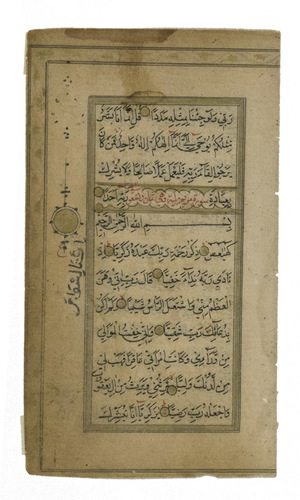 رَبِّي وَلَوْ جِئْنَا بِمِثْلِهِ مَدَدًا قُلْ إِنَّمَا أَنَا بَشَرٌ
مِثْلُكُمْ يُوحَى إِلَيَّ أَنَّمَا إِلَهُكُمْ إِلَهٌ وَاحِدٌ فَمَنْ كَانَ
يَرْجُو لِقَاءَ رَبِّهِ فَلْيَعْمَلْ عَمَلًا صَالِحًا وَلَا يُشْرِكْ
بِعِبَادَةِ سورة مريم وهي رَبِّهِ أَحَدًا
بِسْمِ اللهِ الرَّحْمَنِ الرَّحِيمِ
كهيعص ذِكْرُ رَحْمَةِ رَبِّكَ عَبْدَهُ زَكَرِيَّا إِذْ
نَادَى رَبَّهُ نِدَاءً خَفِيًّا قَالَ رَبِّ إِنِّي وَهَنَ
الْعَظْمُ مِنِّي وَاشْتَعَلَ الرَّأْسُ شَيْبًا وَلَمْ أَكُنْ
بِدُعَائِكَ رَبِّ شَقِيًّا وَإِنِّي خِفْتُ الْمَوَالِيَ
مِنْ وَرَائِي وَكَانَتِ امْرَأَتِي عَاقِرًا فَهَبْ لِي
مِنْ لَدُنْكَ وَلِيًّا يَرِثُنِي وَيَرِثُ مِنْ آلِ يَعْقُوبَ
وَاجْعَلْهُ رَبِّ رَضِيًّا يَا زَكَرِيَّا إِنَّا نُبَشِّرُكَ